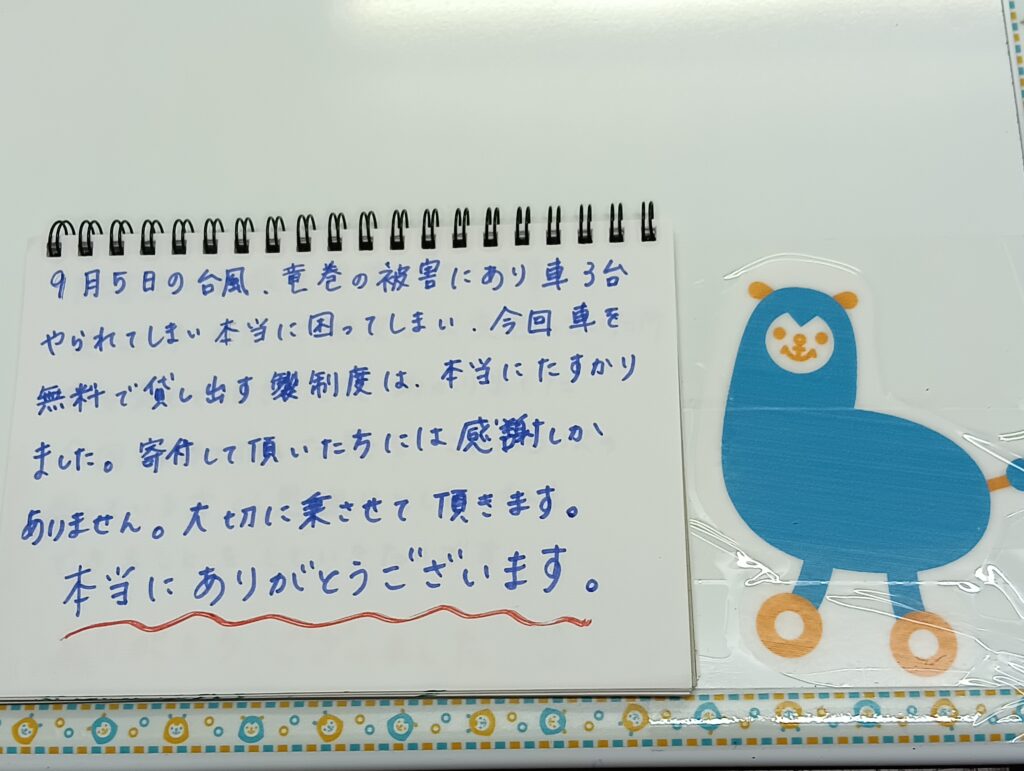 9月5日の台風、竜巻の被害にあり車3台
やられてしまい本当に困ってしまい、今回車を
無料で貸し出す制度は、本当にたすかり
ました。寄付して頂いたちには感謝しか
ありません。大切に乗させて頂きます。
本当にありがとうございます。